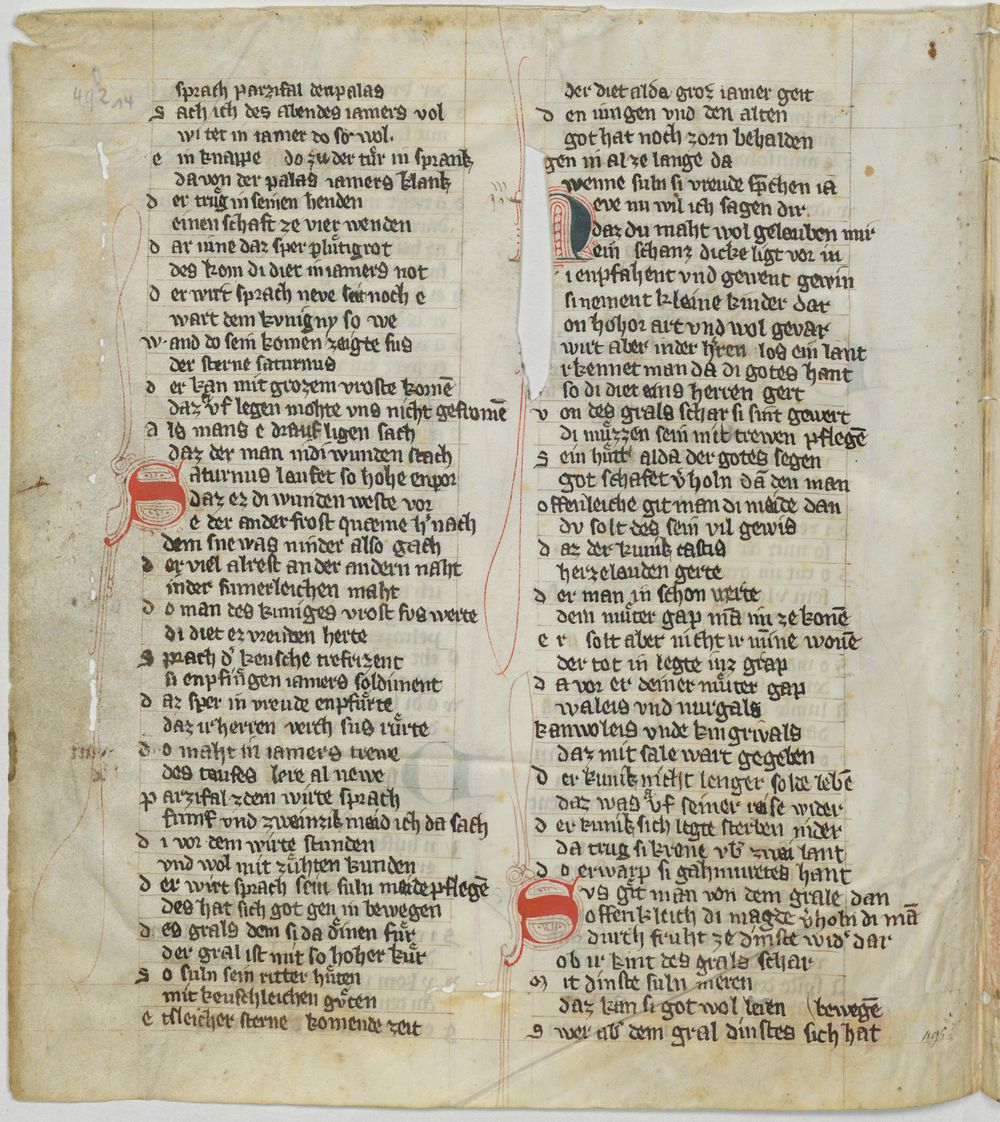 492 14
sprach parzifal den palas
S ach ich des abendes iamers vol
wi tet in iamer do so wol.
e in knappe do zu der tuͤr in sprank
da von der palas iamers klank
d er trug in seinen henden
einen schaft ze vier wenden
d ar inne daz sper plutigrot
des kom di diet in iamers not
d er wirt sprach neve seit noch e
wart dem kunig ny so we
w. and do sein komen zeigte sus
der sterne saturnus
d er kan mit grozem vroste komē
daz vf legen mohte vns nicht gefromē
a ls mans e drauf ligen sach
daz der man in di wunden stach
Saturnus laufet so hohe enpor
daz ez di wunden weste vor
e der ander frost queme h' nach
dem sne was ninder also gach
d er viel alrest an der andern naht
in der sumerleichen maht
d o man des kuniges vrost sus werte
di diet ez vreuden herte
S prach d' keusche trefrizent
si enpfingen iamers soldiment
d az sper in vreude enpfuͤrte
daz ir herren verch sus ruͤrte
d o maht in iamers trewe
des taufes lere al newe
p arzifal zdem wirte sprach
fuͤmf vnd zweinzik meid ich da sach
d i vor dem wirte stunden
vnd wol mit zuͤhten kunden
d er wirt sprach sein suln meide pflegē
des hat sich got gen in bewegen
d es grals dem si da dinen fuͤr
der gral ist mit so hoher kuͤr
S o suln sein ritter huͤten
mit keuschleichen guͤten
e tsleicher sterne komende zeit
der diet alda groz iamer geit
d en iungen vnd den alten
got hat noch zorn behalden
gen in al ze lange da
wenne suln si vreude sp̄chen ia
Neve nu wil ich sagen dir
daz du maht wol gelauben mir
ein schanz dicke ligt vor in
i enpfahent vnd gewent gewin
si nement kleine kinder dar
on hoher art vnd wol gevar
wirt aber inder h'ren los ein lant
rkennet man da di gotes hant
so di diet eins herren gert
v on des grals schar si sint gewert
di muͤzzen sein mit trewen pflegē
S ein huͤtt alda der gotes segen
got schafet v'holn dā den man
offenleiche git man di meide dan
du solt des sein vil gewis
d az der kunik castis
herzelauden gerte
d er man in schon werte
dem muͤter gap mā im ze konē
e r solt aber nicht ir minne wonē
der tot in legte inz grap
d a vor er deiner muͤter gap
waleis vnd nurgals
kanvoleis vnde kingrivals
daz mit sale wart gegeben
d er kunik nicht lenger solde lebē
daz was vf seiner reise wider
d er kunik sich legte sterben nider
da trug si krone vb' zwei lant
d o erwarp si gahmuretes hant
Sus git man von dem grale dan
offenkleich di magde v'holn di mā
durch fruht ze dinste wid' dar
ob ir kint des grals schar
m it dinste suln meren
daz kan si got wol leren (bewegē
S wer ab' dem gral dinstes sich hat
495